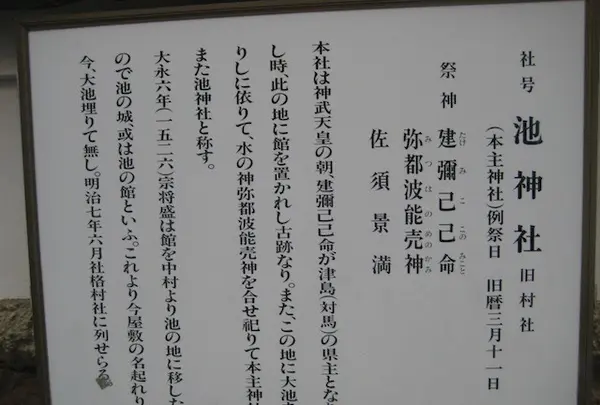 社号 池神社 旧村社
(本主神社)例祭日 旧暦三月十一日
祭神 建彌己己命
たけみここのみこと
弥都波能売神
みつはのめのかみ
佐須景満
本社は神武天皇の朝、建彌己己命が津島(対馬)の県主とな
し時、此の地に館を置かれし古跡なり。また、この地に大池
りしに依りて、水の神弥都波能売神を合せ祀りて本主神
また池神社と称す。
大永六年(一五二六)宗将盛は館を中村より池の地に移した
ので池の城、或は池の館といふ。これより今屋敷の名起れり
今、大池埋りて無し。明治七年六月社格村社に列せらる。